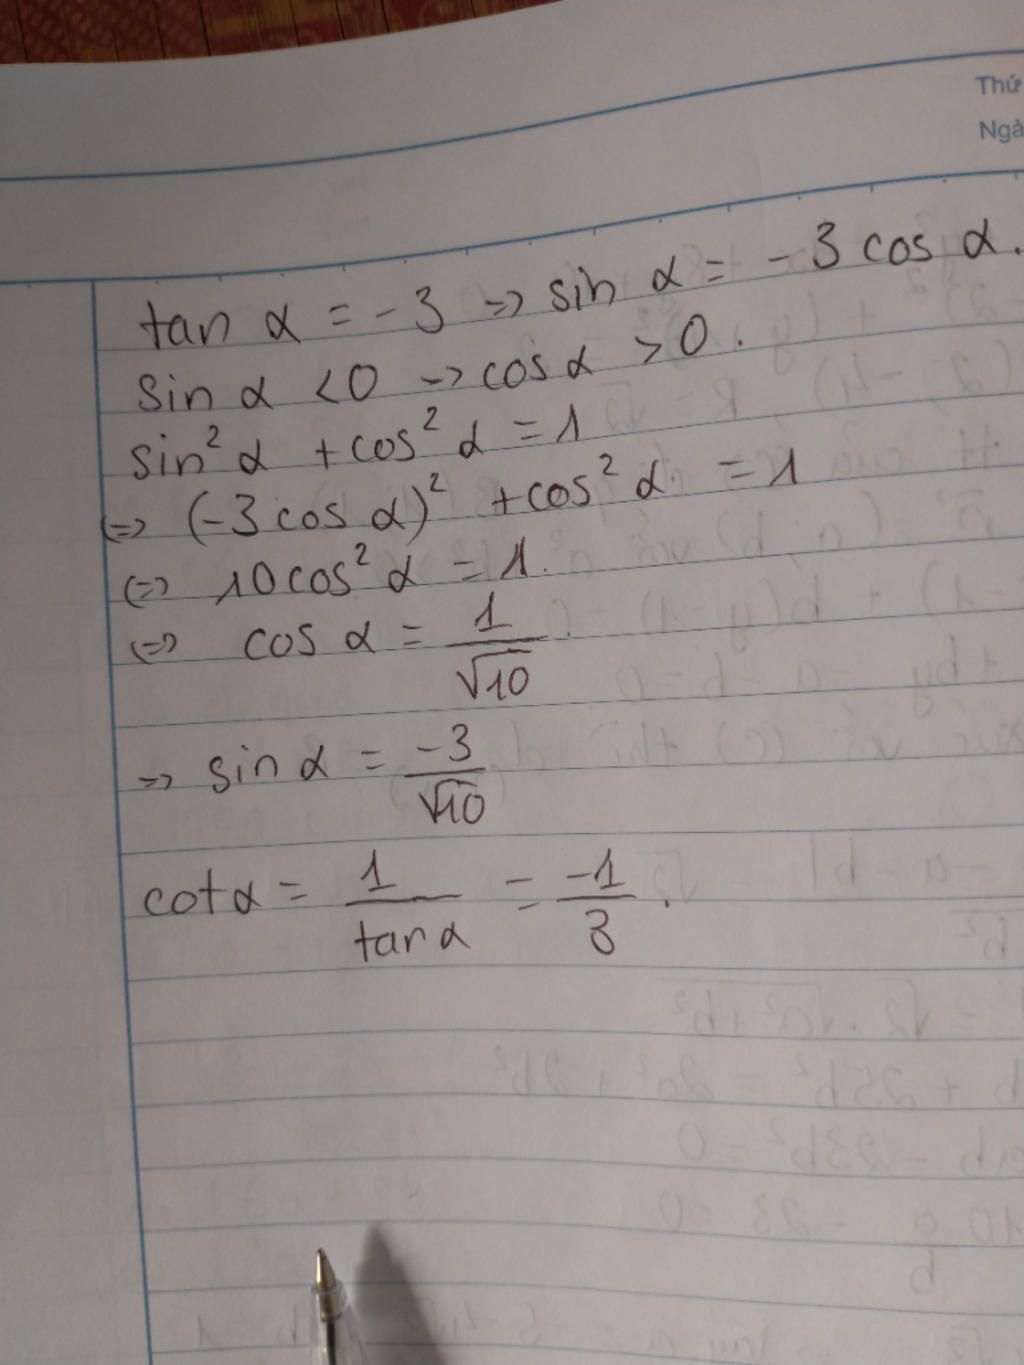 Thứ
Ngà
tan α = -3 => sin α = -3 cos α.
sin α < 0 -> cos α > 0.
sin² α + cos² α = 1
<=> (-3 cos α)² + cos² α = 1
<=> 10 cos² α = 1.
<=> cos α = 1/√10.
=> sin α = -3/√10
cot α = 1/tan α = -1/3.